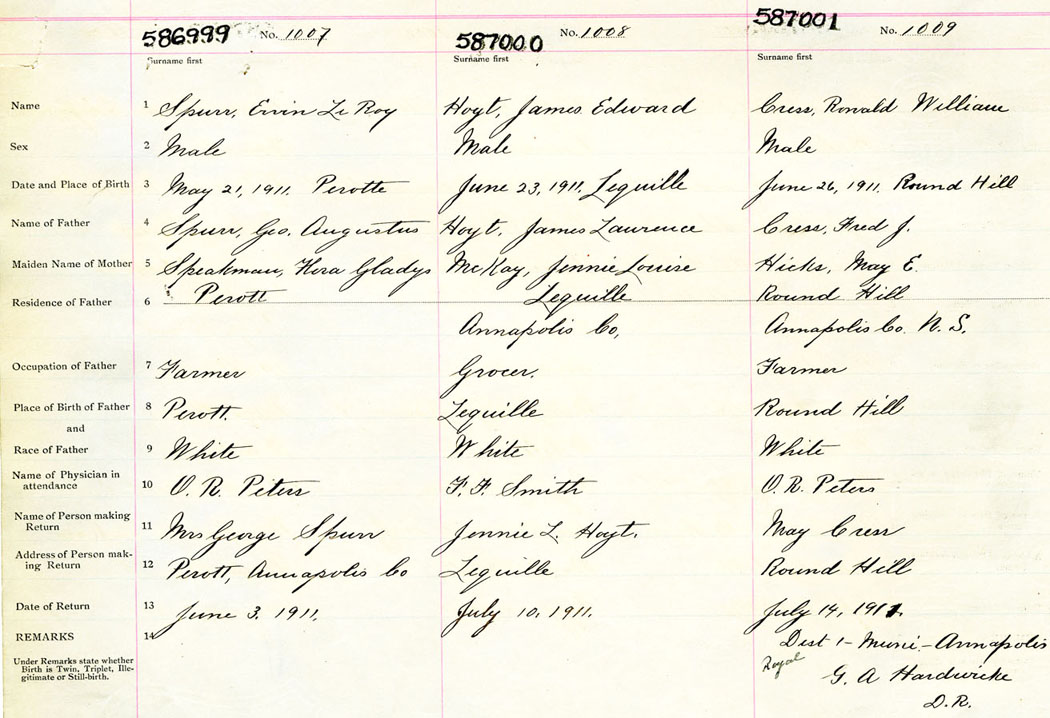 586999 No. 1007 587000 No. 1008 587001 No. 1009
Surname first Surname first Surname first
Name 1 Spurr, Ervin Le Roy Hoyt, James Edward Cress, Ronald William
Sex 2 Male Male Male
Date and Place of Birth 3 May 21, 1911. Perotte June 23, 1911. Lequille June 26, 1911. Round Hill
Name of Father 4 Spurr, Geo. Augustus Hoyt, James Laurence Cress, Fred J.
Maiden Name of Mother 5 Speakman, Flora Gladys McKay, Jennie Louise Hicks, May E.
Residence of Father 6 Perott Lequille Round Hill
Annapolis Co, Annapolis Co. N.S.
Occupation of Father 7 Farmer Grocer. Farmer
Place of Birth of Father 8 Perott. Lequille Round Hill
and
Race of Father 9 White White White
Name of Physician in
attendance 10 O. R. Peters F. F. Smith O. R. Peters
Name of Person making
Return 11 Mrs George Spurr Jennie L. Hoyt. May Cress
Address of Person mak-
ing Return 12 Perott, Annapolis Co Lequille Round Hill
Date of Return 13 June 3. 1911. July 10, 1911. July 14, 1911
REMARKS 14 Dist 1 - Muni - Annapolis
Under Remarks state whether Royal
Birth is Twin, Triplet, Ille- G. A Hardwicke
gitimate or Still-birth.
D.R.